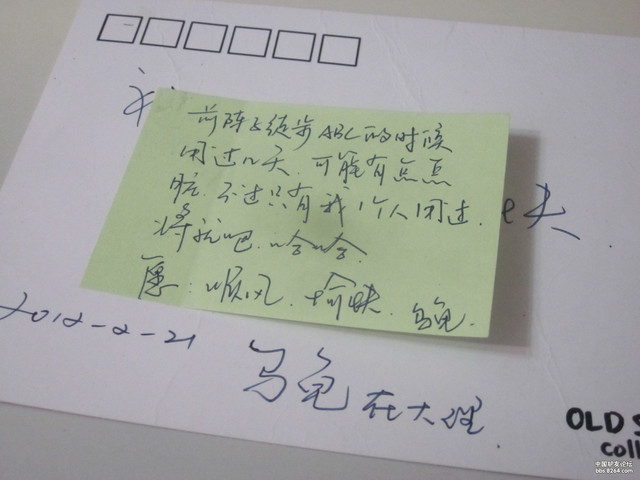 前阵子徒步ABC的时候
用过几天.可能有点点
脏.不过只有我1个人用过.
将就吧.哈哈.
愿:顺风.愉快.乌龟.
2012-2-21
乌龟在大理
OLD S
coll
中国驴友论坛
bbs.8264.com